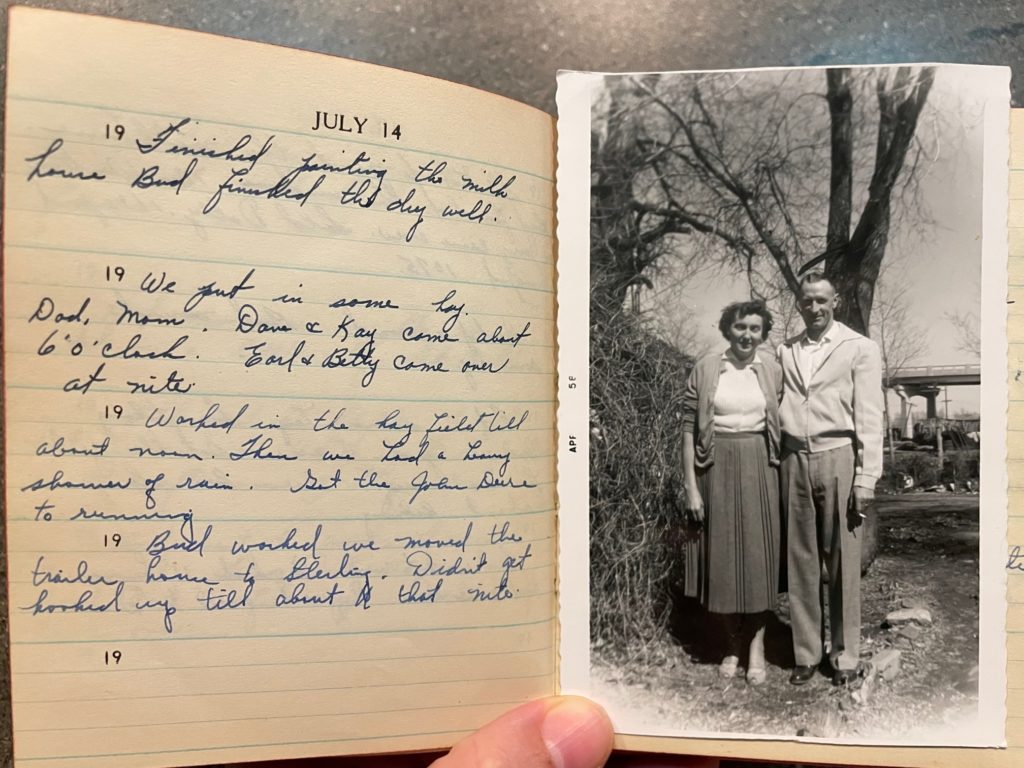 JULY 14
19 Finished painting the milk
house Bud finished the dry well.
19 We put in some hay.
Dad, Mom. Dave & Kay come about
6 'o' clock. Earl & Betty come over
at nite.
19 Worked in the hay field till
about noon. Then we had a heavy
shower of rain. Get the John Deere
to running
19 Bud worked we moved the
trailer house to Sterling. Didn't get
hooked up till about that nite.
19
APR 58